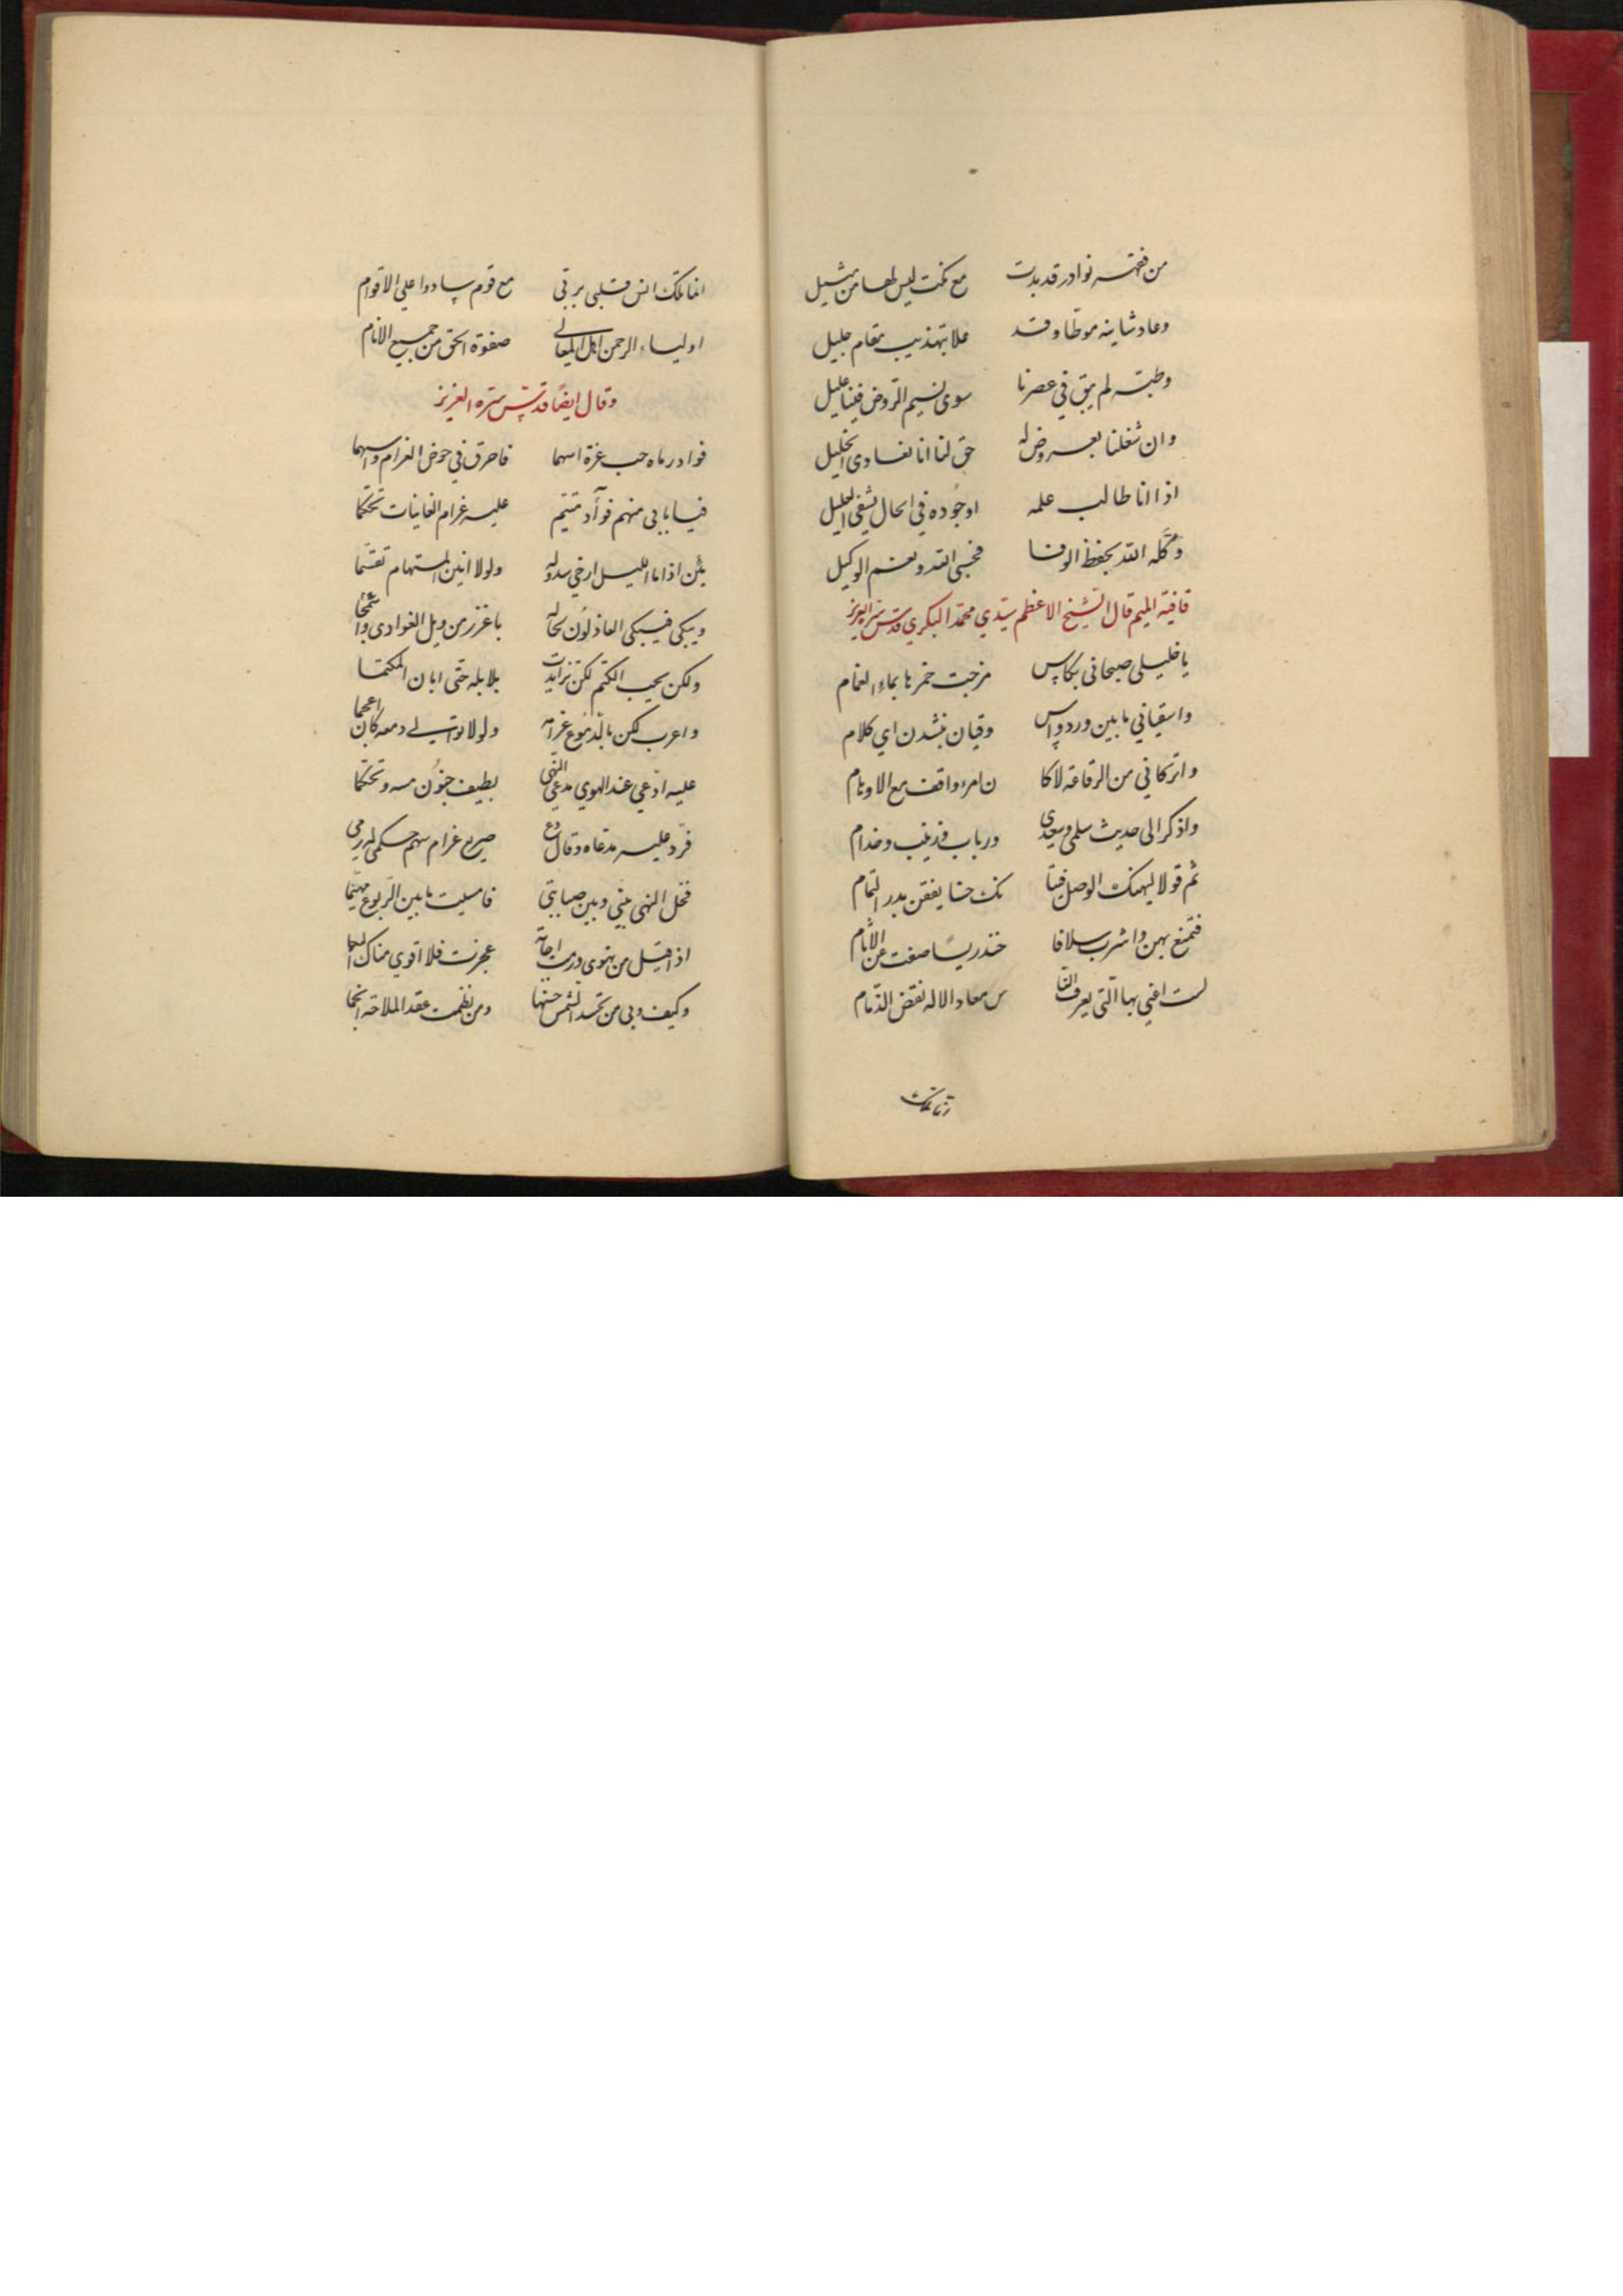 من فقهه نوادر قد بدت مع نكت ليس لها من مثيل
وعاد شانيه موطا وقد علا بتهذيب مقام جليل
وطبه لم يبق في عصرنا سوى نسيم الروض فينا عليل
وان شغلنا بعروض له حق لنا انا نفادى الخليل
اذا انا طالب علمه اوجوده في الحال يشفى الغليل
وكله الله بحفظ الوفا فحسبى الله ونعم الوكيل
قافية الميم قال الشيخ الاعظم سيدي محمد البكري قدس سره العزيز
يا خليلى صبحانى بكاس مزجت خمرها بماء الغمام
واسقياني ما بين ورد واس وقيان ينشدن اي كلام
واتركاني من الرقاعة لاكا ن امرء واقف مع الاوهام
واذكرا لى حديث سلمى وسعدي ورباب وزينب وخدام
ثم قولا ليهنك الوصل فينا تك حسنا يفقن بدر التمام
فتمتع بهن واشرب سلافا خندريسا صفت عن الاثام
لست اعني بها التي يعرف النا س معاد الاله نقض الذمام
انما تلك انس قلبى برقى مع قوم سادوا علي الاقوام
اولياء الرحمن اهل المعالي صفوة الحق من جميع الانام
وقال ايضا قدس سره العزيز
فواد رماه حب عزة اسهما فاحرق في حوض الغرام واسهما
فيا بابى منهم فوآد متيم عليه غرام الغانيات تحكما
يئن اذا ما الليل ارخي سدوله ولولا انين المستهام تقسما
ويبكى فيبكى العاذلون لحاله باغزر من وبل الغوادى واثجما
ولكن يحب الكتم لكن تزايدت بلابله حتى ابان المكتما
واعرب لكن بالدموع غرامه ولولا توالي دمعه كان اعجما
عليه ادعي عند الهوي مدعى النهى بطيف جنون مسه وتحكما
فرد عليه مدعاه وقال دع صريع غرام سهم سلمى له رمى
فخل النهى بيني وبين صبابتي فامسيت ما بين الربوع متيما
اذا قيل من تهوى ورمت اجابة عجزت فلا اقوي هناك
وكيف وبى من تحسد الشمس حسنها ومن نظمت عقد الملاحة انجما